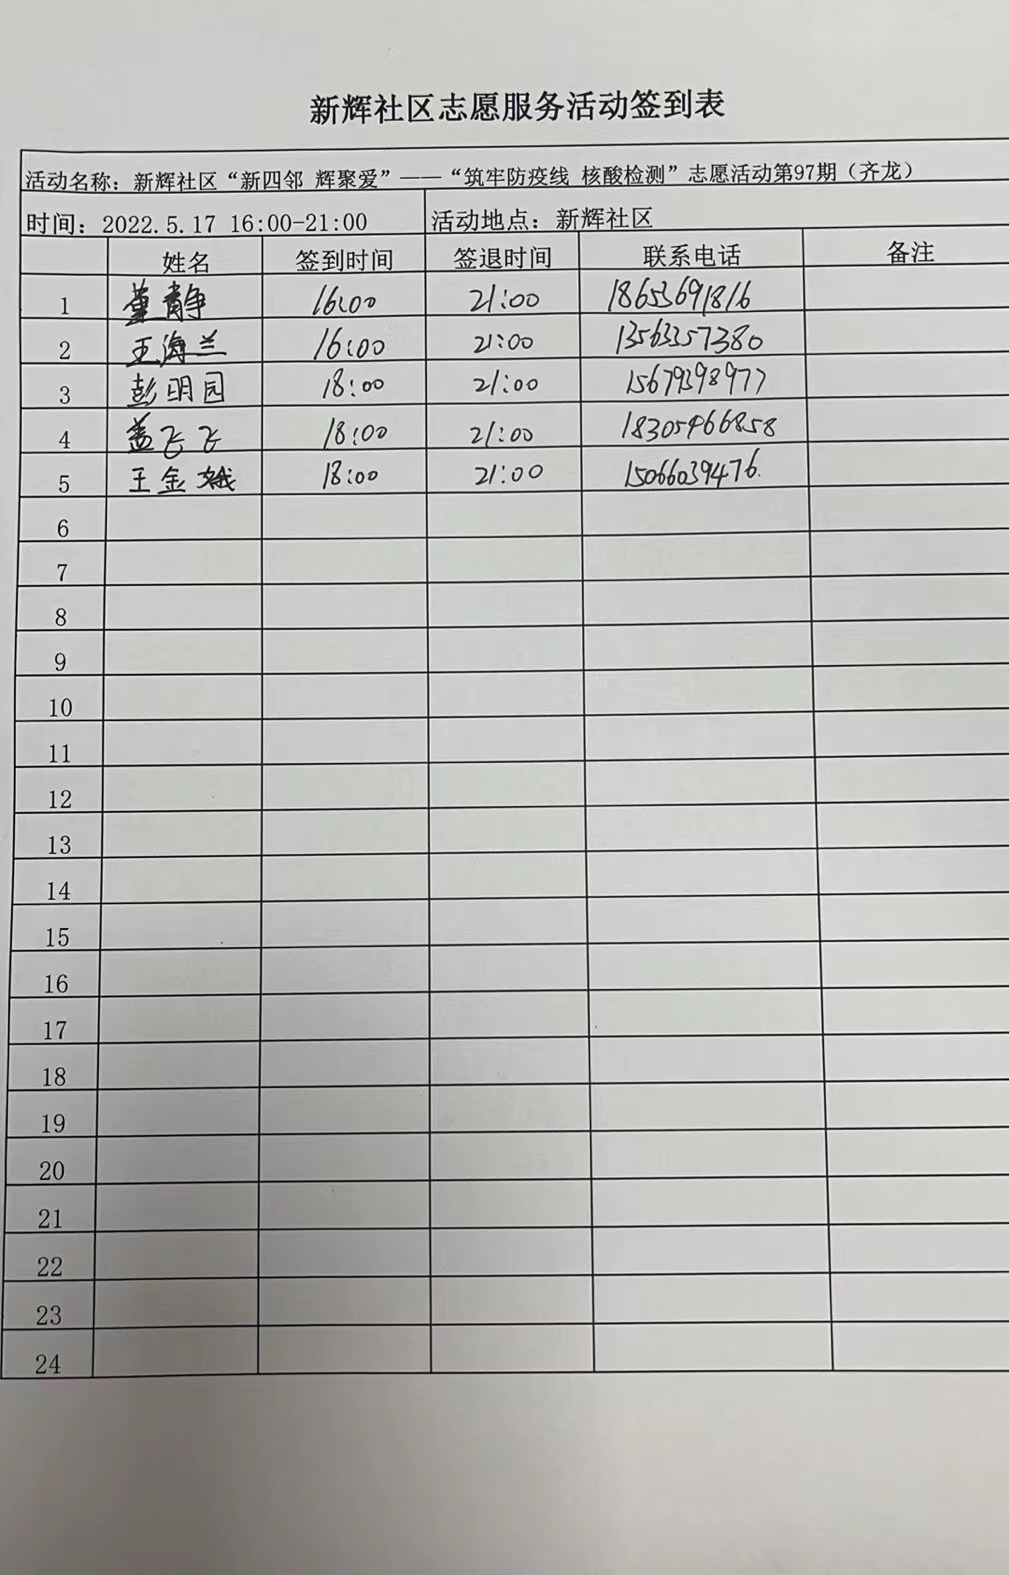 新辉社区志愿服务活动签到表
活动名称：新辉社区“新四邻 辉聚爱”——“筑牢防疫线 核酸检测”志愿活动第97期（齐龙）
时间：2022.5.17 16:00-21:00 活动地点：新辉社区
姓名 签到时间 签退时间 联系电话 备注
1 董静 16:00 21:00 18653691816
2 王海兰 16:00 21:00 13563357380
3 彭明园 18:00 21:00 15679398977
4 盖飞飞 18:00 21:00 18305466858
5 王金娥 18:00 21:00 15066039476.
6
7
8
9
10
11
12
13
14
15
16
17
18
19
20
21
22
23
24